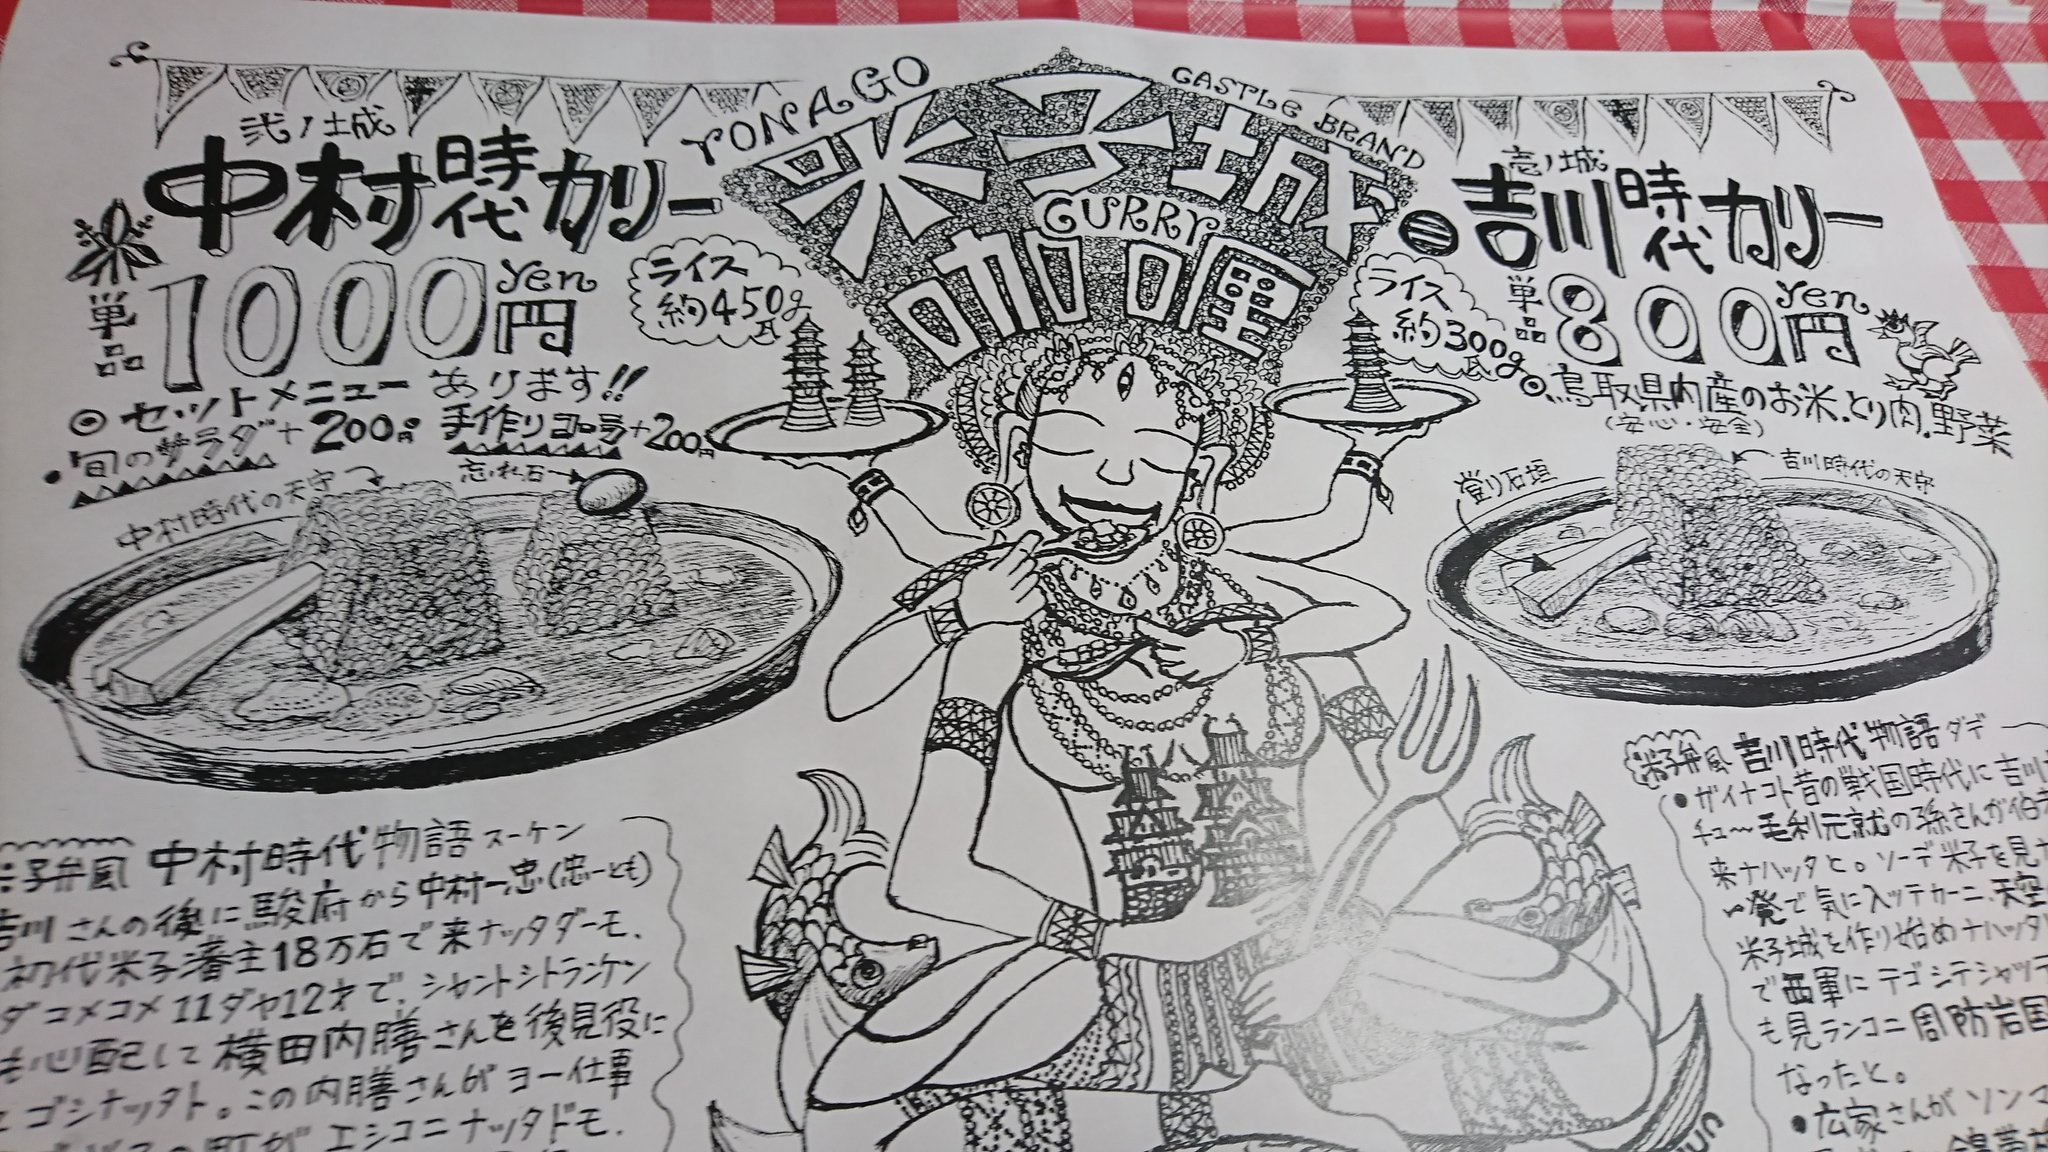 YONAGO
CASTLE BRAND
米子城
CURRY
咖喱
弐ノ城
中村時代カリー
単品
1000円
yen
ライス
約450g
◎セットメニューあります!!
・旬のサラダ+200円
手作りコロッケ+200円
中村時代の天守
忘れ石
壱ノ城
吉川時代カリー
ライス
約300g
単品
800円
yen
◎鳥取県内産のお米.とり肉.野菜
(安心・安全)
登り石垣
吉川時代の天守
子弁風 中村時代物語 スーケン
吉川さんの後に駿府から中村一忠(忠一とも)
初代米子藩主18万石で来ナッタダーモ、
ダコメコメ11ダヤ12才で、シャントシトランケン
心配して横田内膳さんを後見役に
ゴシナッタト。この内膳さんがヨー仕事
の町がエシコニナッタドモ.
米子弁風 吉川時代物語 ダデ
・ザイナコト昔の戦国時代に吉川
チュ〜毛利元就の孫さんが伯
来ナハッタと。ソーデ米子を見
一発で気に入ッテカーニ、天空
米子城を作り始めナハッタ
で西軍にテゴシテシャッテ
も見ランコニ周防岩国
なったと。
・広家さんがソンマ